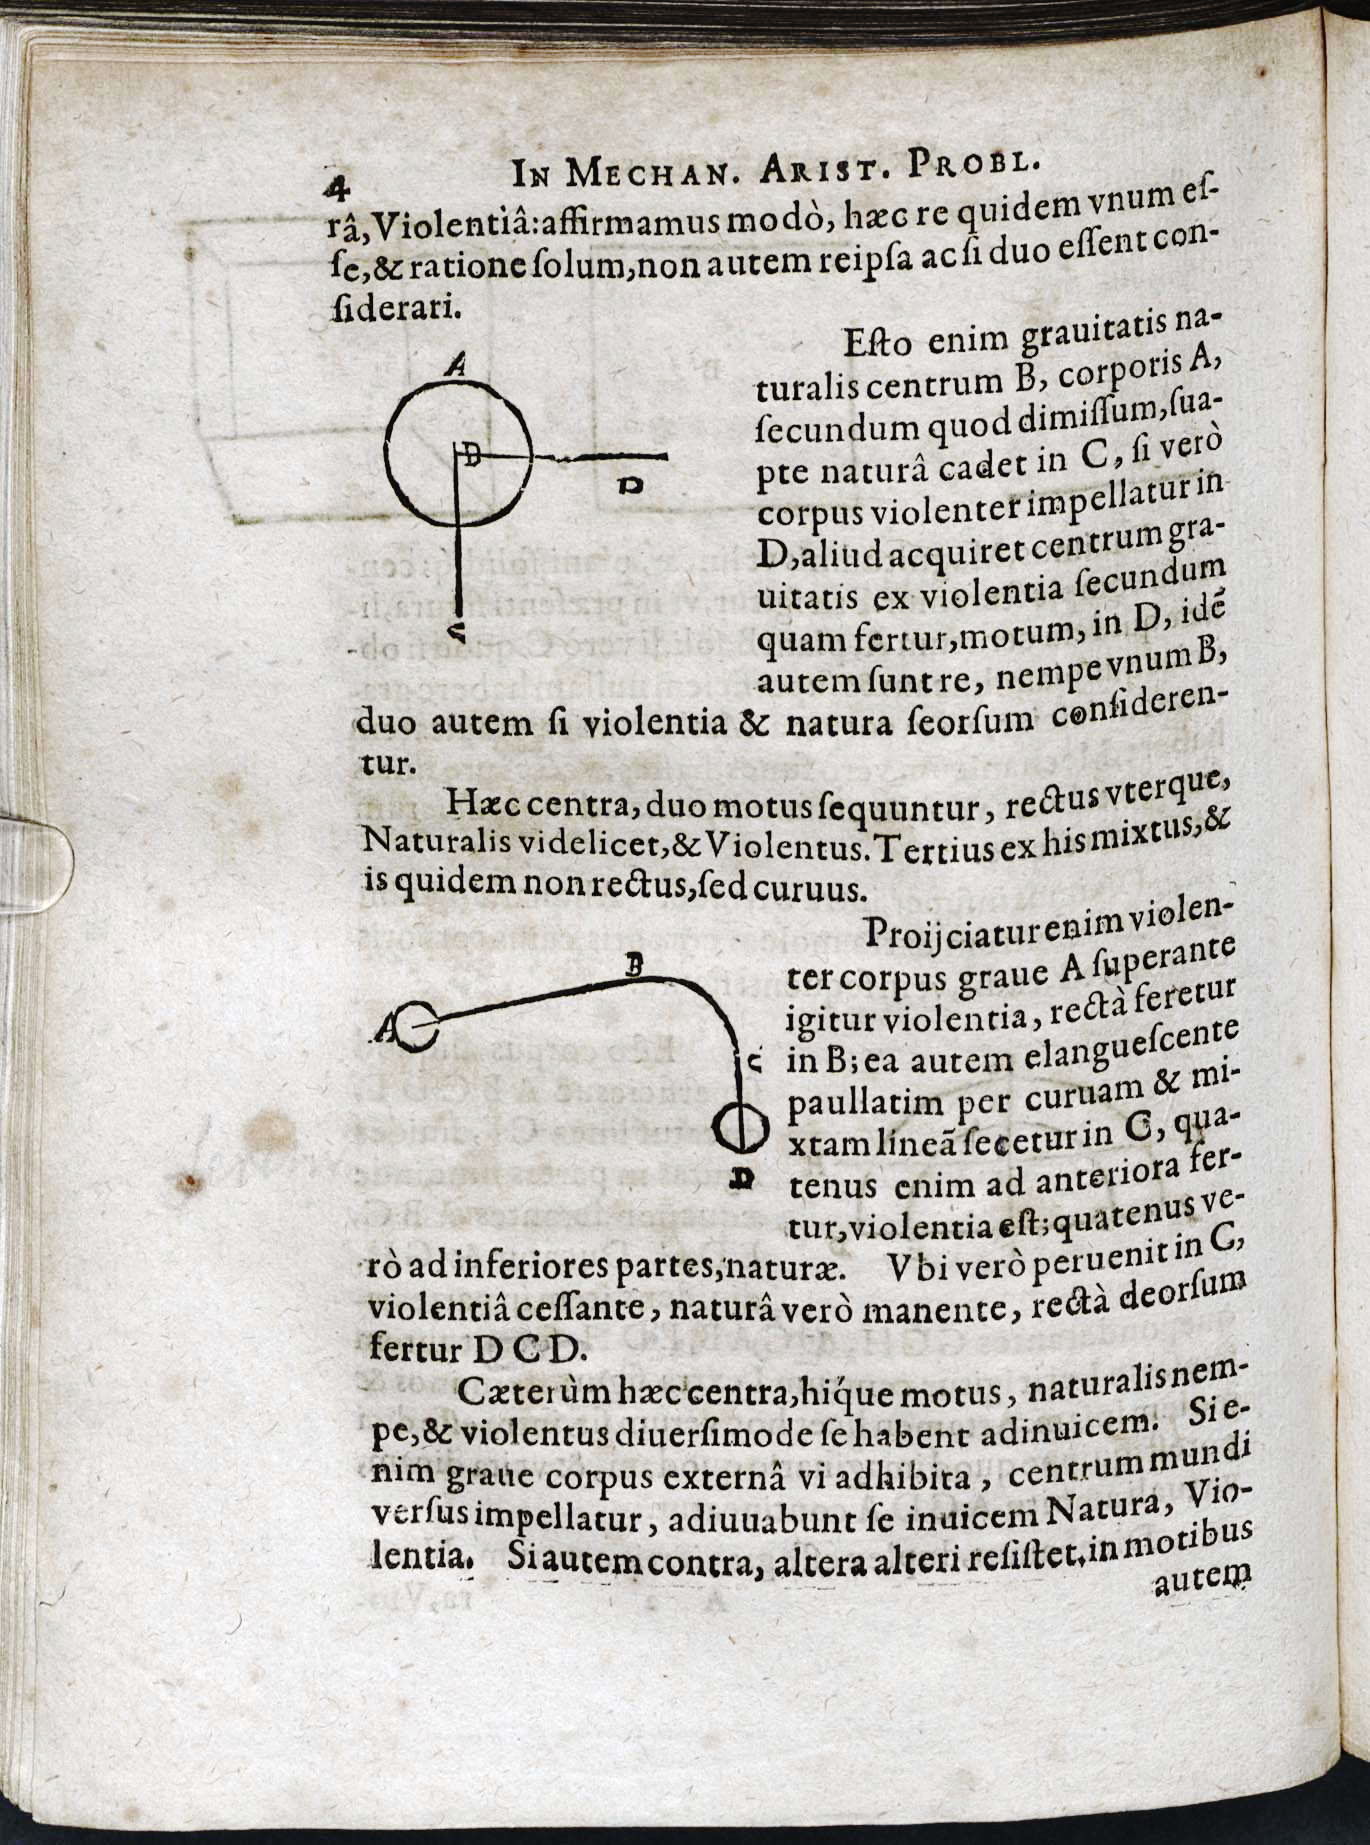 4 IN MECHAN. ARIST. PROBL.
râ, Violentiâ: affirmamus modò, hæc re quidem vnum eſ-
ſe, & ratione ſolum, non autem reipſa ac ſi duo eſſent con-
ſiderari.
A
D
D
C
Eſto enim grauitatis na-
turalis centrum B, corporis A,
ſecundum quod dimiſſum, ſua-
pte naturâ cadet in C, ſi verò
corpus violenter impellatur in
D, aliud acquiret centrum gra-
uitatis ex violentia ſecundum
quam fertur, motum, in D, idẽ
autem ſunt re, nempe vnum B,
duo autem ſi violentia & natura ſeorſum conſideren-
tur.
Hæc centra, duo motus ſequuntur, rectus vterque,
Naturalis videlicet, & Violentus. Tertius ex his mixtus, &
is quidem non rectus, ſed curuus.
B
A
C
D
Proijciatur enim violen-
ter corpus graue A ſuperante
igitur violentia, rectà feretur
in B; ea autem elangueſcente
paullatim per curuam & mi-
xtam lineã ſecetur in C, qua-
tenus enim ad anteriora fer-
tur, violentia eſt; quatenus ve-
rò ad inferiores partes, naturæ. Vbi verò peruenit in C,
violentiâ ceſſante, naturâ verò manente, rectà deorſum
fertur D C D.
Cæterùm hæc centra, hiq́ue motus, naturalis nem-
pe, & violentus diuerſimode ſe habent adinuicem. Si e-
nim graue corpus externâ vi adhibita, centrum mundi
verſus impellatur, adiuuabunt ſe inuicem Natura, Vio-
lentia. Si autem contra, altera alteri reſiſtet, in motibus
autem